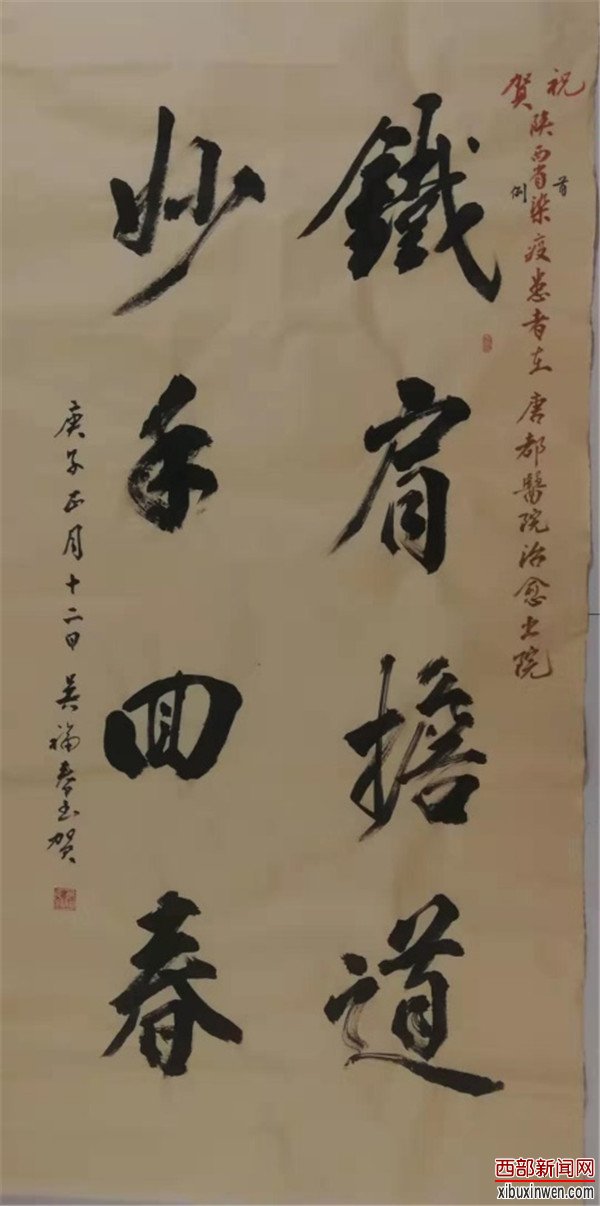 祝贺陕西省首例染疫患者在唐都醫院治愈出院
鐵肩擔道
妙手回春
庚子正月十二日吴福春书贺
西部新闻网
xibuxinwen.com